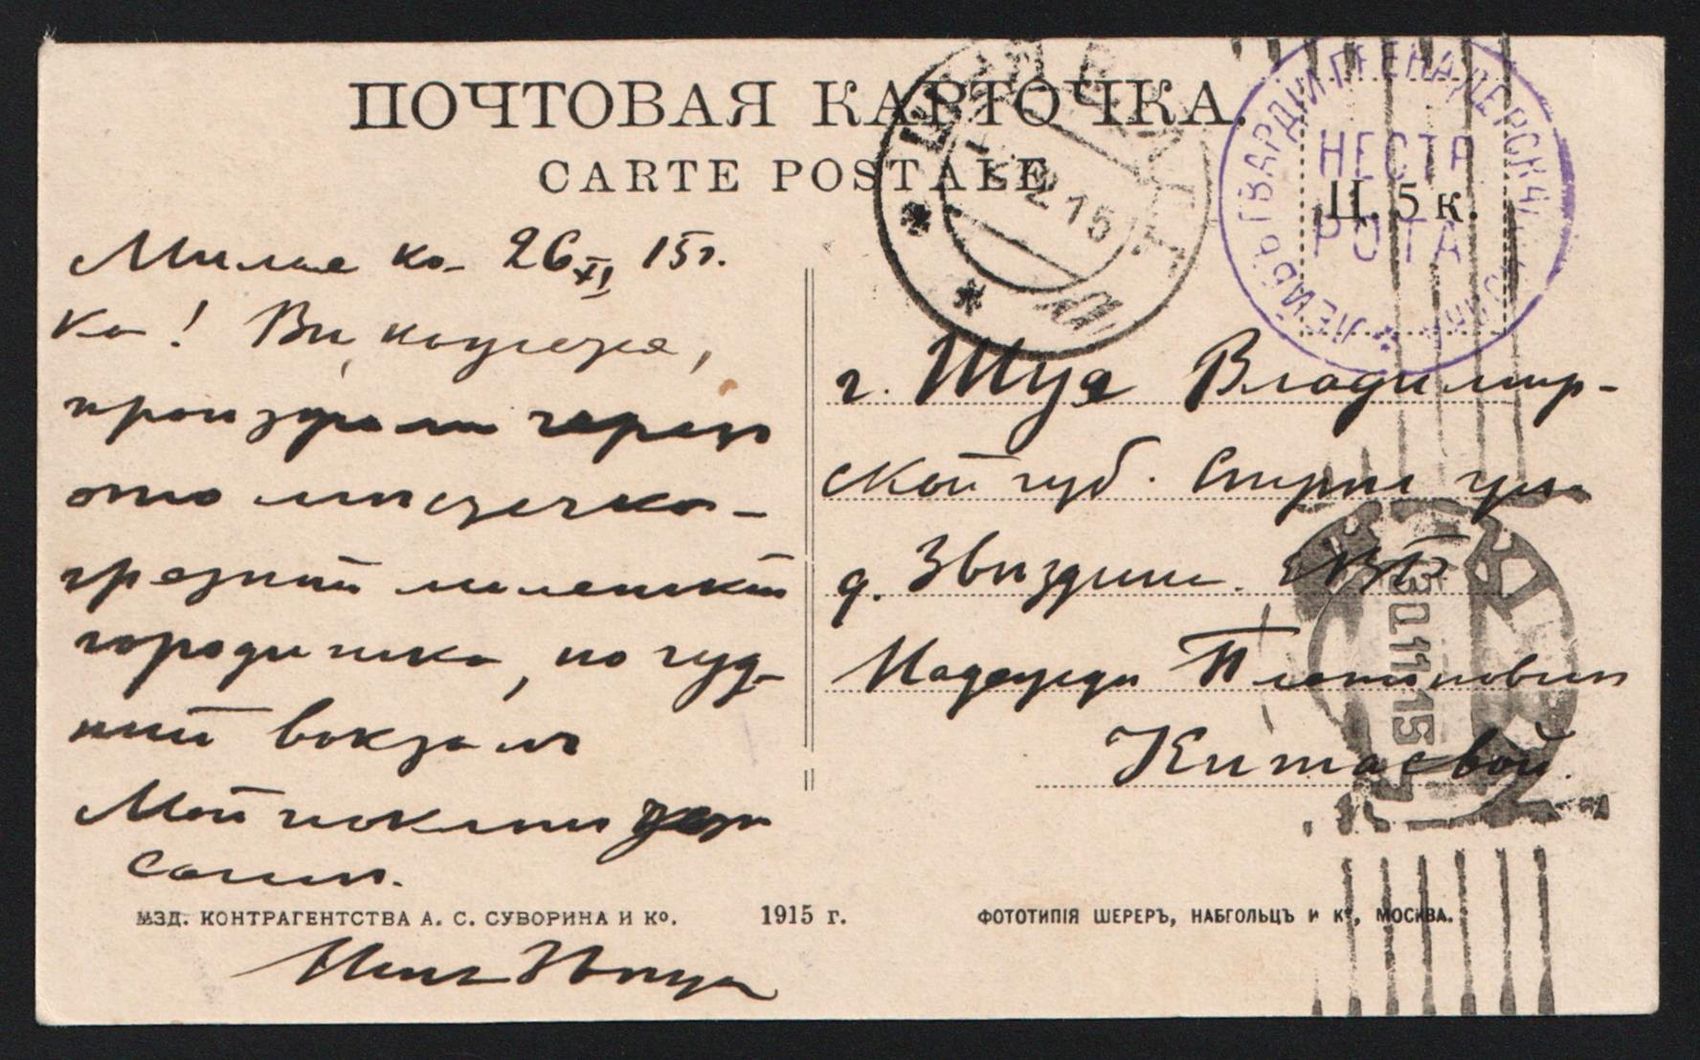 ПОЧТОВАЯ КАРТОЧКА.
CARTE POSTALE
Ц. 5 к.
ЛЕЙБЪ ГВАРДІИ ГРЕНАДЕРСКІЙ
НЕСТР
РОТА
12 15
Милая ко- 26 XI 15г.
ка! Вы, кажется,
проезжали через
это местечко-
грязный маленький
городишка, но чуд-
ный вокзал
Мой поклон
г. Шуя Владимир-
ской губ.
д. Звездин. ЕВБ
Надежде Платоновне
Китаевой.
11 15
ИЗД. КОНТРАГЕНТСТВА А. С. СУВОРИНА И Кº. 1915 г. ФОТОТИПІЯ ШЕРЕРЪ, НАБГОЛЬЦЪ И Кº, МОСКВА.